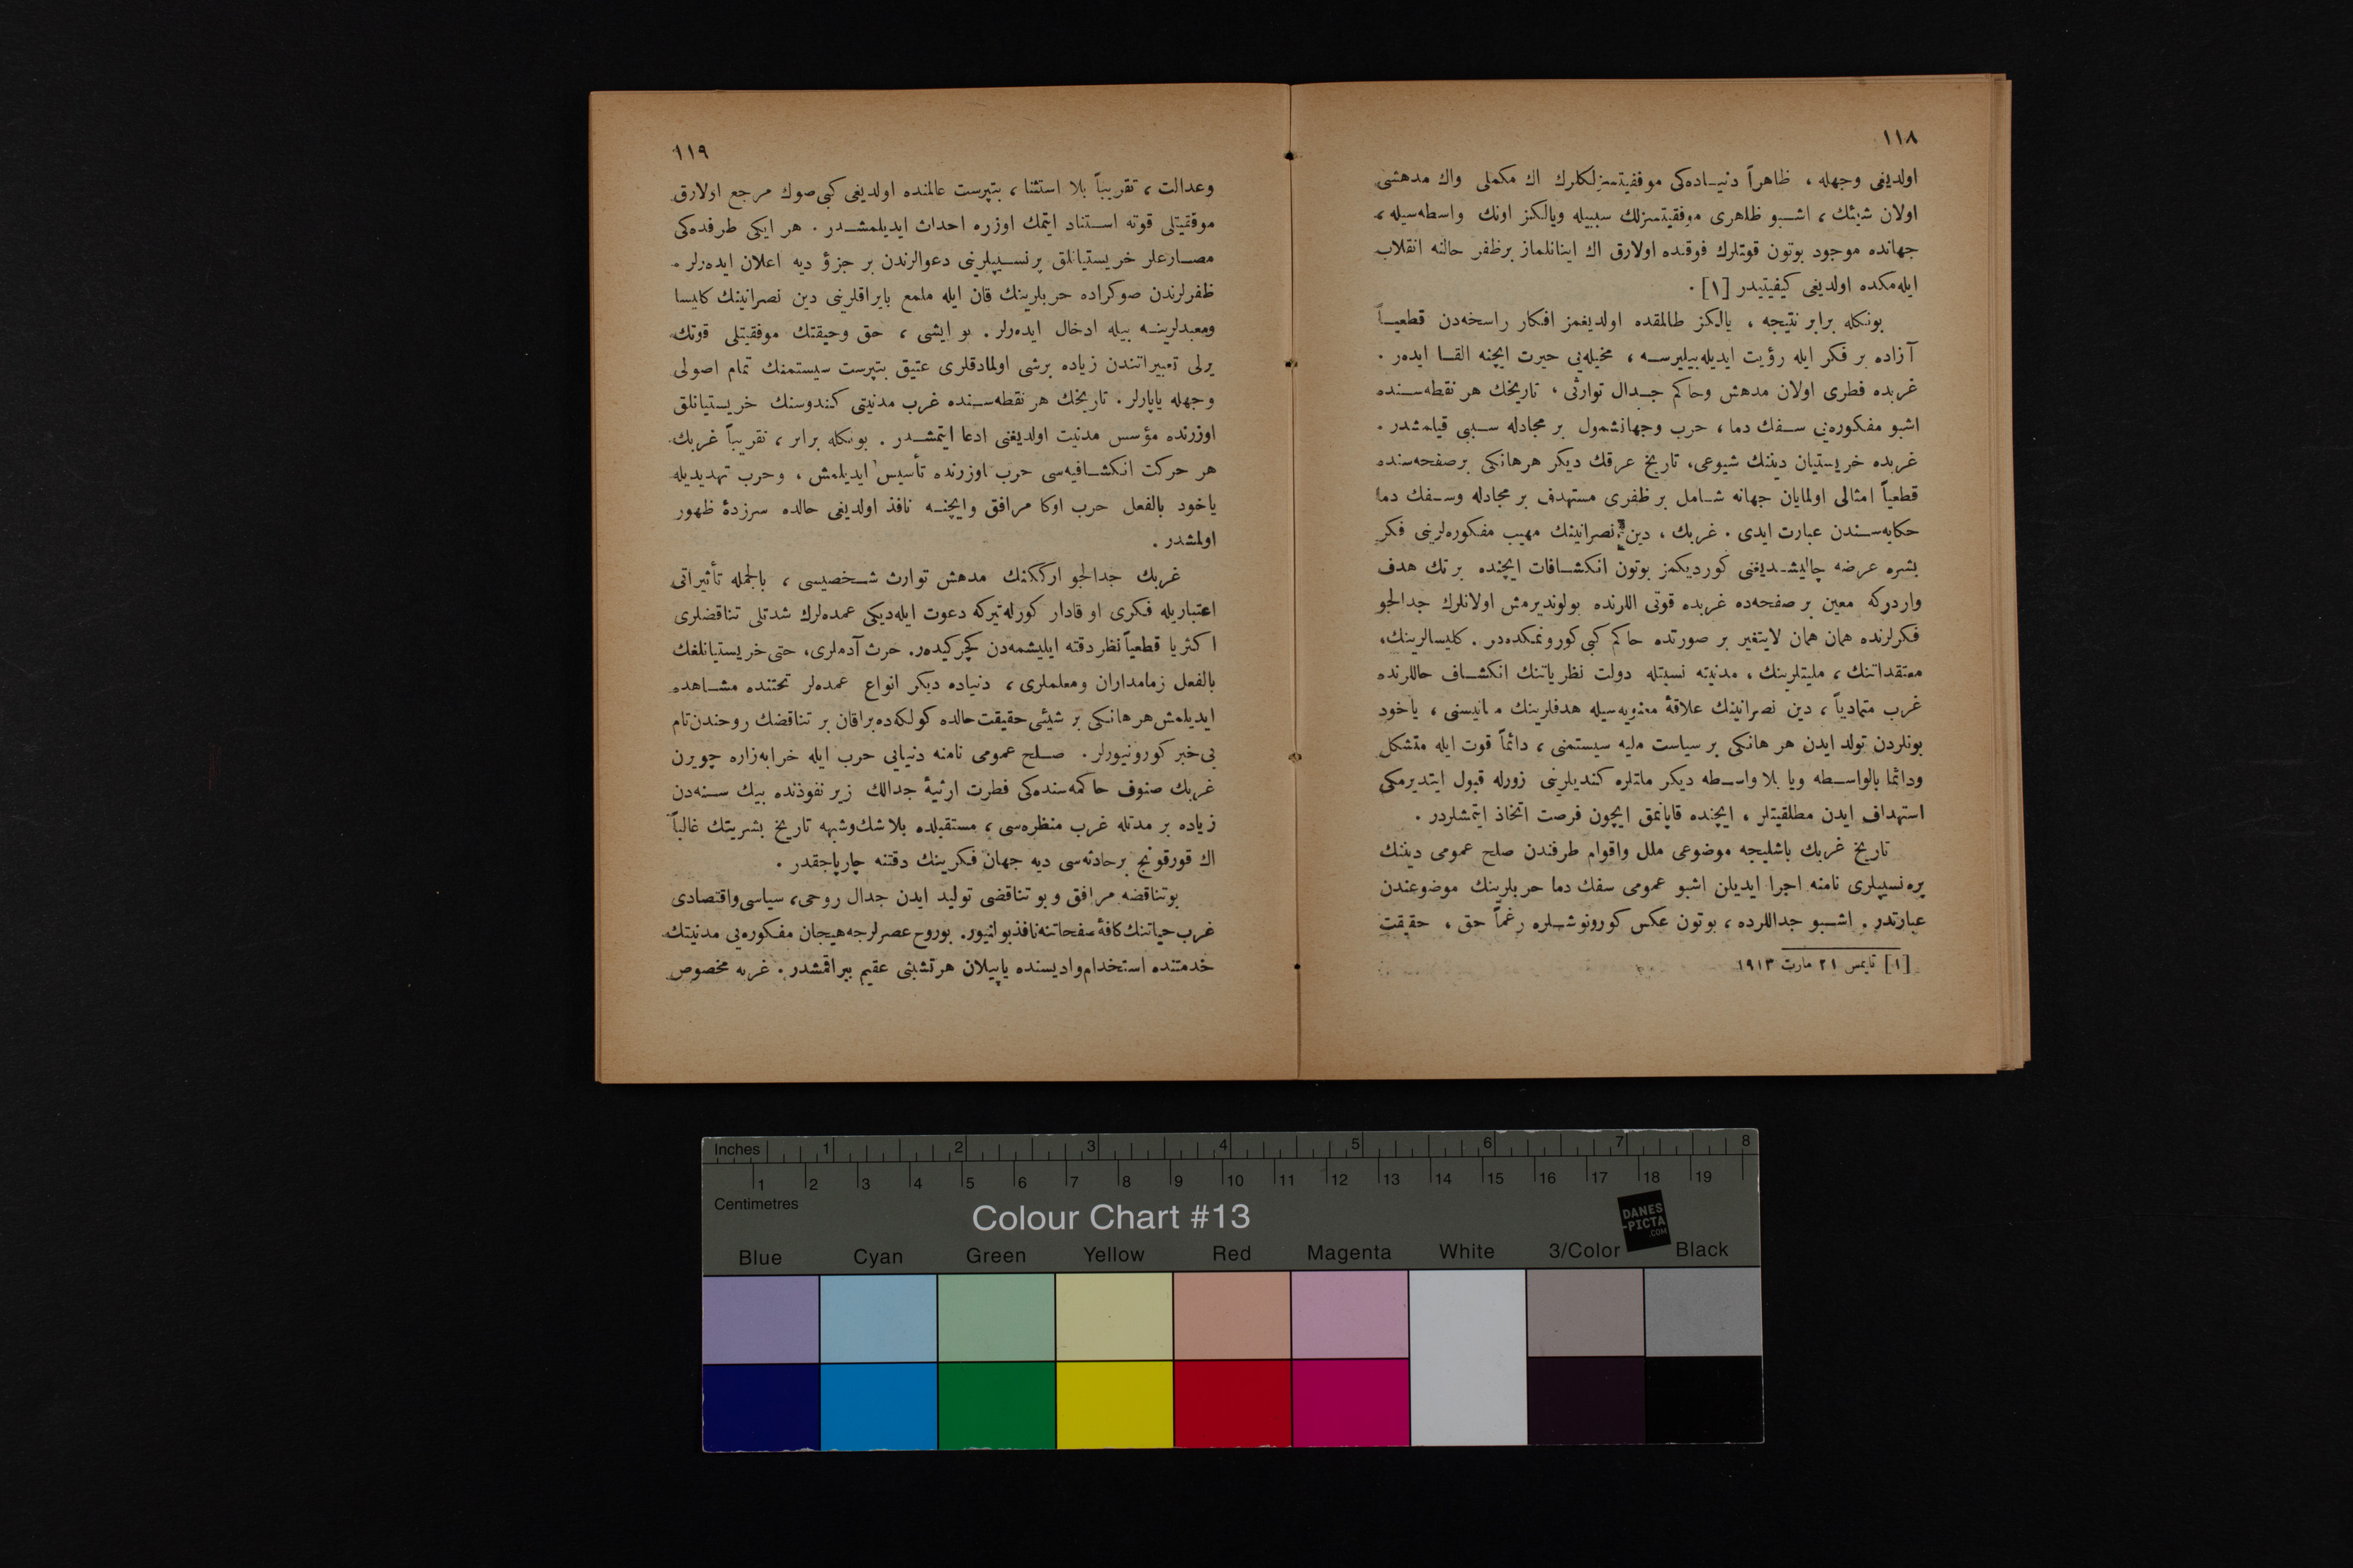 ١١٨
اولدیغی وجهله ، ظاهراً دنیـاده‌کی موفقیتسزلکلرك اك مکملی واك مدهشی
اولان شیئك ، اشـبو ظاهری موفقیتسزلك سببیله ویالکز اونك واسطه‌سیله ،
جهانده موجود بوتون قوتلرك فوقنده اولارق اك اینانلماز برظفر حالنه انقلاب
ایله‌مکده اولدیغی کیفیتیدر [١] ٠
بونکله برابر نتیجه ، یالکز طالمقده اولدیغمز افکار راسخه‌دن قطعیـاً
آزاده بر فکر ایله رؤیت ایدیله‌بیلیرسـه ، مخیله‌یی حیرت ایچنه القـا ایده‌ر .
غربده فطری اولان مدهش وحاکم جـدال توارثی ، تاریخك هر نقطه‌سـنده
اشبو مفکوره‌یی سـفك دما ، حرب وجهانشمول بر مجادله سـببی قیلمشدر .
غربده خریستیان دیننك شیوعی، تاریخ عرقك دیکر هرهانکی برصفحه‌سنده
قطعیاً امثالی اولمایان جهانه شـامل بر ظفری مستهدف بر مجادله وسـفك دما
حکایه‌سـندن عبارت ایدی . غربك ، دین نصرانیتك مهیب مفکوره‌لرینی فکر
بشره عرضه چالیشـدیغنی کوردیکمز بوتون انکشـافات ایچنده بر تك هدف
واردرکه معین بر صفحه‌ده غربده قوتی اللرنده بولوندیرمش اولانلرك جدالجو
فکرلرنده همان همان لایتغیر بر صورتده حاکم کبی کورونمکده‌در . کلیسالرینك،
معتقداتنك ، ملیتلرینك ، مدنیته نسبتله دولت نظریاتنك انکشـاف حاللرنده
غرب متمادیاً ، دین نصرانیتك علاقهٔ معنویه‌سیله هدفلرینك مانیسنی ، یاخود
بونلردن تولد ایدن هر هانکی بر سیاست ملیه سیستمنی ، دائماً قوت ایله متشکل
ودائما بالواسـطه ویا بلا واسـطه دیکر ملتلره کندیلرینی زورله قبول ایتدیرمکی
استهداف ایدن مطلقیتلر ، ایچنده قاپانمق ایچون فرصت اتخاذ ایتمشلردر .
تاریخ غربك باشلیجه موضوعی ملل واقوام طرفندن صلح عمومی دیننك
پره‌نسیپلری نامنه اجرا ایدیلن اشبو عمومی سفك دما حربلرینك موضوعندن
عبارتدر . اشـبو جداللرده ، بوتون عکس کورونوشـلره رغماً حق ، حقیقت
[١] تایمس ٢١ مارت ١٩١٣
١١٩
وعدالت ، تقریباً بلا استثنا ، بتپرست عالمنده اولدیغی کبی صوك مرجع اولارق
موفقیتلی قوته اسـتناد ایتمك اوزره احداث ایدیلمشـدر . هر ایکی طرفده‌کی
مصـارعلر خریستیانلق پرنسـیپلرینی دعوالرندن بر جزؤ دیه اعلان ایده‌رلر .
ظفرلرندن صوکراده حربلرینك قان ایله ملمع بایراقلرینی دین نصرانیتك کلیسا
ومعبدلرینـه بیله ادخال ایده‌رلر . بو ایشی ، حق وحیقتك موفقیتلی قوتك
یرلی تعبیراتندن زیاده برشی اولمادقلری عتیق بتپرست سیستمنك تمام اصولی
وجهله یاپارلر . تاریخك هر نقطه‌سـنده غرب مدنیتی کـندوسنك خریستیانلق
اوزرنده مؤسس مدنیت اولدیغنی ادعا ایتمشـدر . بونکله برابر ، تقریباً غربك
هر حرکت انکشـافیه‌سی حرب اوزرنده تأسیس ایدیلمش ، وحرب تهدیدیله
یاخود بالفعل حرب اوکا مرافق وایچنـه نافذ اولدیغی حالده سرزدهٔ ظهور
اولمشدر .
غربك جدالجو ارککنك مدهش توارث شـخصیسی ، بالجمله تأثیراتی
اعتباریله فـکری او قادار کورله‌تیرکه دعوت ایله‌دیکی عمده‌لرك شدتلی تناقضلری
اکثریا قطعیاً نظر دقته ایلیشمه‌دن کچر کیده‌ر. حرث آدملری، حتی خریستیانلغك
بالفعل زمامداران ومعلملری ، دنیاده دیکر انواع عمده‌لر تحتنده مشـاهده
ایدیلمش هر هانکی بر شیئی حقیقت حالده کولکه‌ده براقان بر تناقضك روحندن تام
بی خبر کورونیورلر . صـلح عمومی نامنه دنیایی حرب ایله خرابه‌زاره چویرن
غربك صنوف حاکمه‌سنده‌کی فطرت ارثیهٔ جدالك زیر نفوذنده بیك سـنه‌دن
زیاده بر مدتله غرب منظره‌سی ، مستقبلده بلاشك‌وشبهه تاریخ بشریتك غالباً
اك قورقونج برحادثه‌سی دیه جهان فکرینك دقتنه چارپاجقدر .
بوتناقضه مرافق و بو تناقضی تولید ایدن جدال روحی، سیاسی‌واقتصادی
غرب حیاتنك کافهٔ صفحاتنه نافذ بولنیور. بوروح عصرلرجه هیجان مفکوره‌یی مدنیتك
خدمتنده استخدام وادیسنده یاپیلان هرتشبثی عقیم بیراقمشدر . غربه مخصوص
Inches 1 2 3 4 5 6 7 8
1 2 3 4 5 6 7 8 9 10 11 12 13 14 15 16 17 18 19
Centimetres
Colour Chart #13
DANES
-PICTA
.COM
Blue Cyan Green Yellow Red Magenta White 3/Color Black